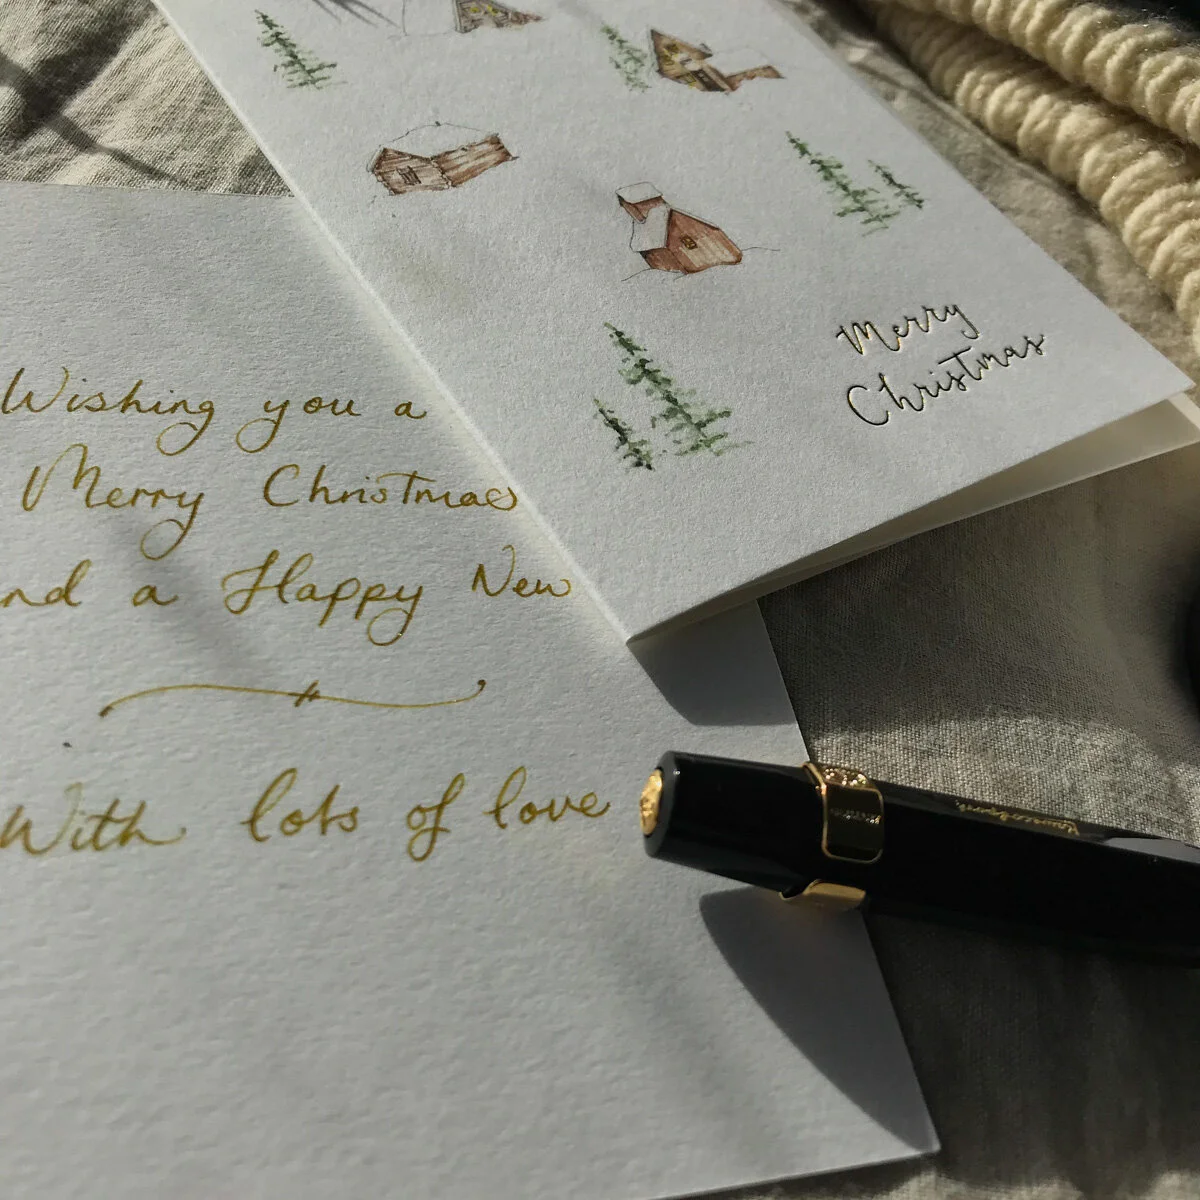 Merry
Christmas
Wishing you a
Merry Christmas
and a Happy New
With lots of love